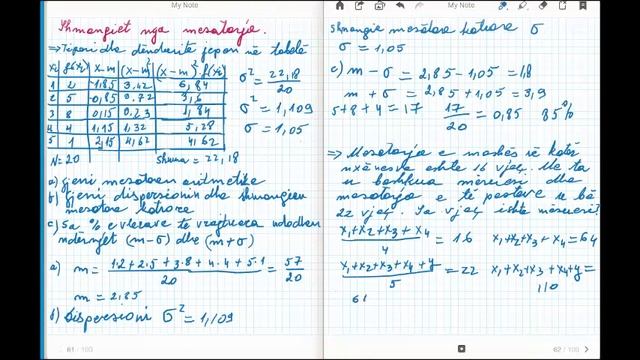 My Note
Shmangiet nga mesatarja.
⇒ Tipari dhe denduritë jepen në tabelë
xi | f(xi) | x-m | (x-m)² | (x-m)²·f(xi)
1 | 2 | 1,85 | 3.42 | 6,84
2 | 5 | 0,85 | 0.72 | 3,6
3 | 8 | 0,15 | 0.23 | 1,84
4 | 4 | 1,15 | 1,32 | 5,28
5 | 1 | 2,15 | 4,62 | 4,62
N=20 shuma = 22,18
σ² = 22,18/20
σ² = 1,109
σ = 1,05
a) Gjeni mesataren aritmetike
b) Gjeni dispersionin dhe shmangien
mesatare katrore
c) Sa % e vlerave te vrojtuara ndodhen
ndërmjet (m-σ) dhe (m+σ)
a) m = (1·2 + 2·5 + 3·8 + 4·4 + 5·1)/20 = 57/20
m = 2,85
b) Dispersioni σ² = 1,109
61 / 100
My Note
shmangie mesatare katrore σ
σ = 1,05
c) m - σ = 2,85 - 1,05 = 1,8
m + σ = 2,85 + 1,05 = 3,9
5+8+4 = 17 17/20 = 0,85 85%
⇒ Mesatarja e moshës në katër
nxënësve eshte 16 vjeç. Me ta
u bashkua mësuesi dhe
mesatarja e te pestëve u bë
22 vjeç. Sa vjeç ishte mësuesi?
(x₁+x₂+x₃+x₄)/4 = 16 x₁+x₂+x₃+x₄ = 64
(x₁+x₂+x₃+x₄+y)/5 = 22 x₁+x₂+x₃+x₄+y = 110
62 / 100